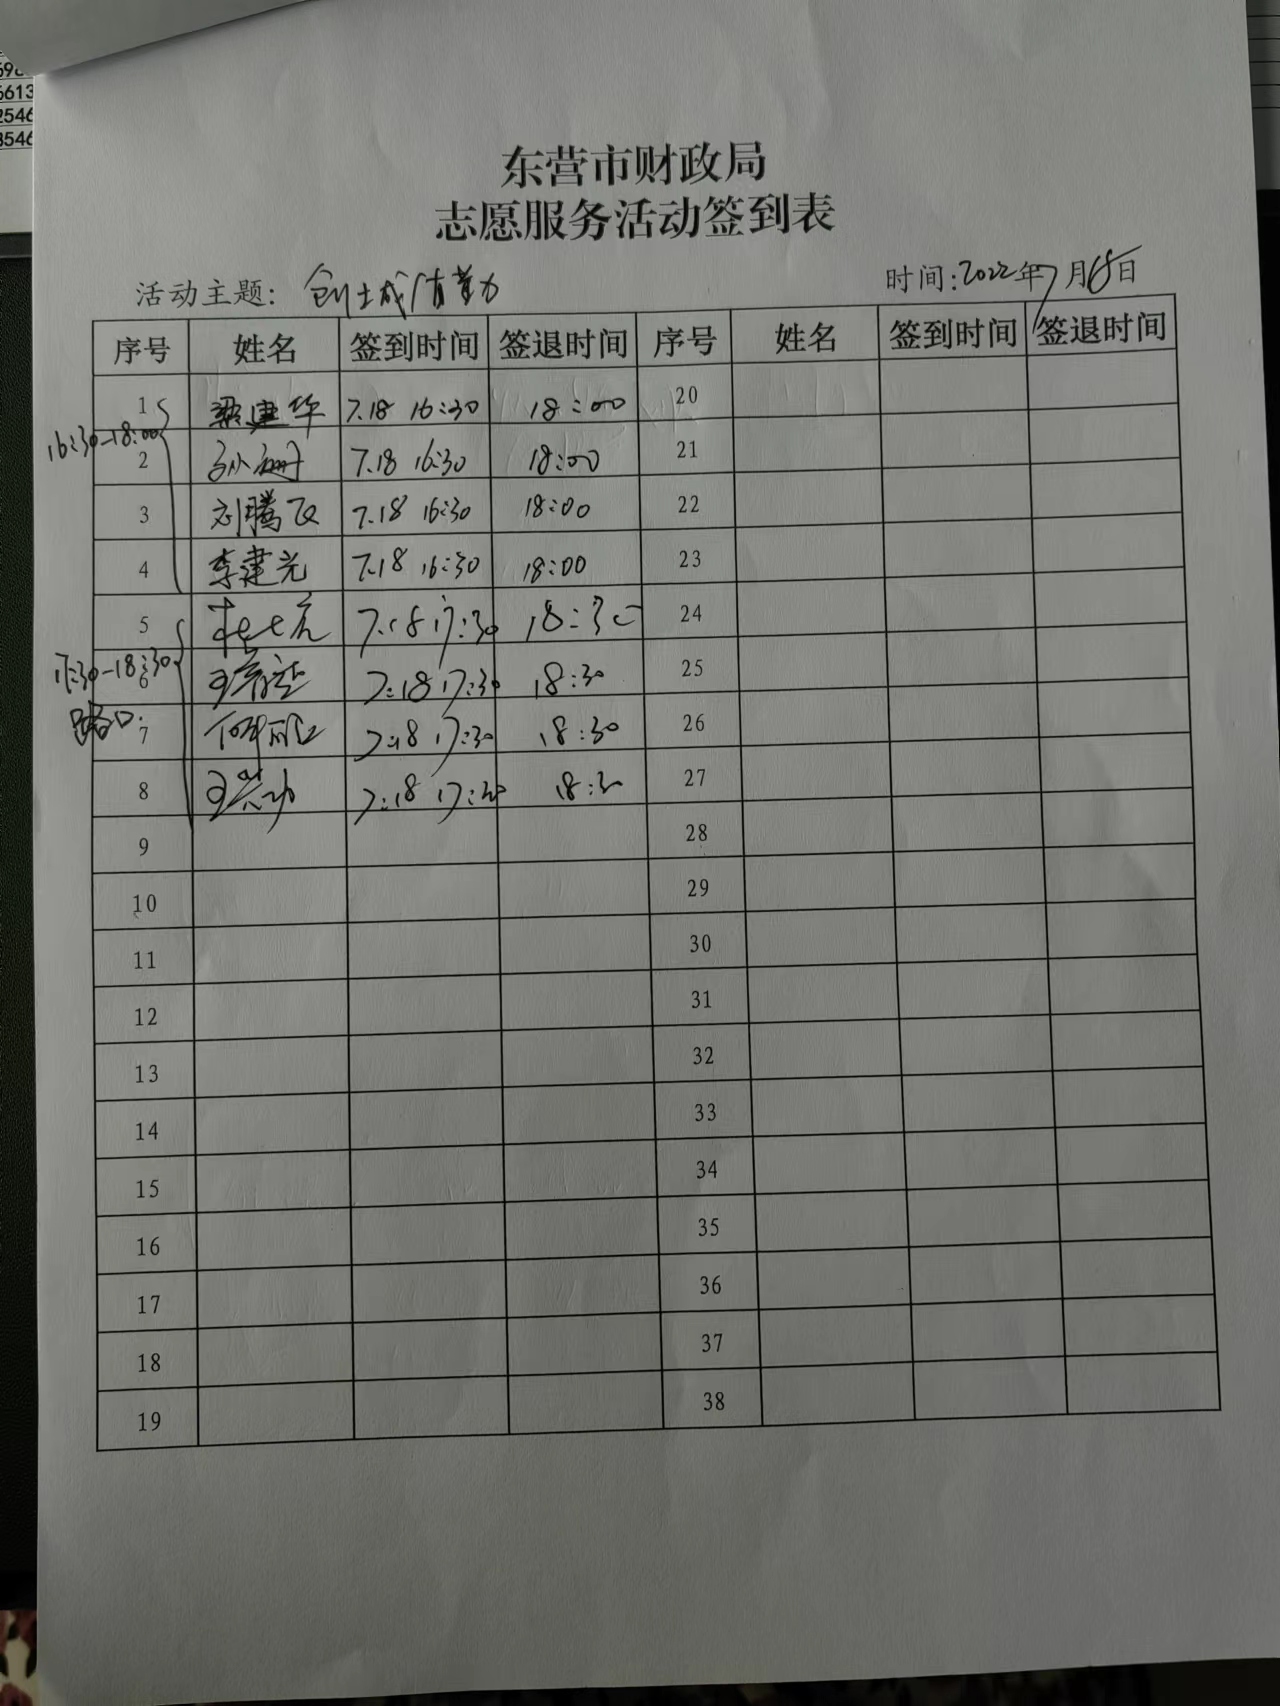 6613
2546
3546
东营市财政局
志愿服务活动签到表
活动主题: 创城值勤 时间:2022年7月18日
序号 姓名 签到时间 签退时间 序号 姓名 签到时间 签退时间
1 梁建华 7.18 16:30 18:00 20
16:30-18:00
2 孙珊 7.18 16:30 18:00 21
3 刘腾飞 7.18 16:30 18:00 22
4 李建光 7.18 16:30 18:00 23
5 7.18 17:30 18:30 24
17:30-18:30
6 7.18 17:30 18:30 25
路口
7 7.18 17:30 18:30 26
8 7.18 17:30 18:30 27
9 28
10 29
11 30
12 31
13 32
14 33
15 34
16 35
17 36
18 37
19 38